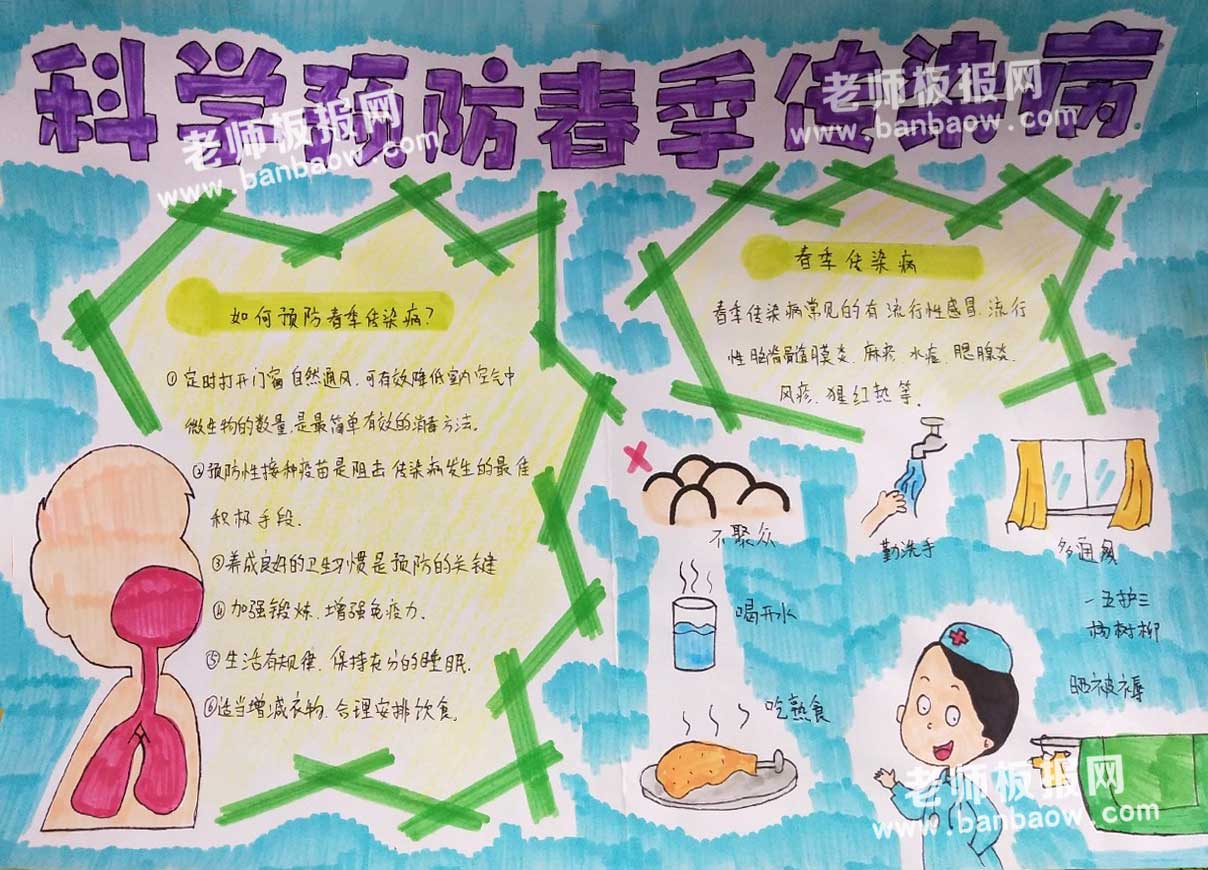 科学预防春季传染病
老师板报网
www.banbaow.com
老师板报网
www.banbaow.com
如何预防春季传染病?
①定时打开门窗自然通风.可有效降低室内空气中
微生物的数量,是最简单有效的消毒方法。
②预防性接种疫苗是阻击传染病发生的最佳
积极手段.
③养成良好的卫生习惯是预防的关键
④加强锻炼.增强免疫力.
⑤生活有规律.保持充分的睡眠.
⑥适当增减衣物.合理安排饮食.
春季传染病
春季传染病常见的有流行性感冒.流行
性脑脊髓膜炎.麻疹.水痘.腮腺炎.
风疹.猩红热等.
不聚众
勤洗手
多通风
喝开水
一五护三
杨树柳
晒被褥
吃熟食
老师板报网
www.banbaow.com